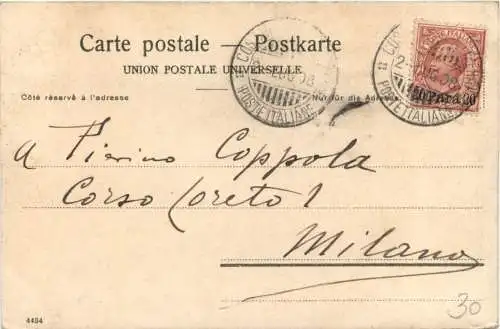 Carte postale — Postkarte
UNION POSTALE UNIVERSELLE
Côté réservé à l'adresse
Nur für die Adresse
POSTE ITALIANE
POSTE ITALIANE
A Pierino Coppola
Corso Loreto 1
Milano
4484
30